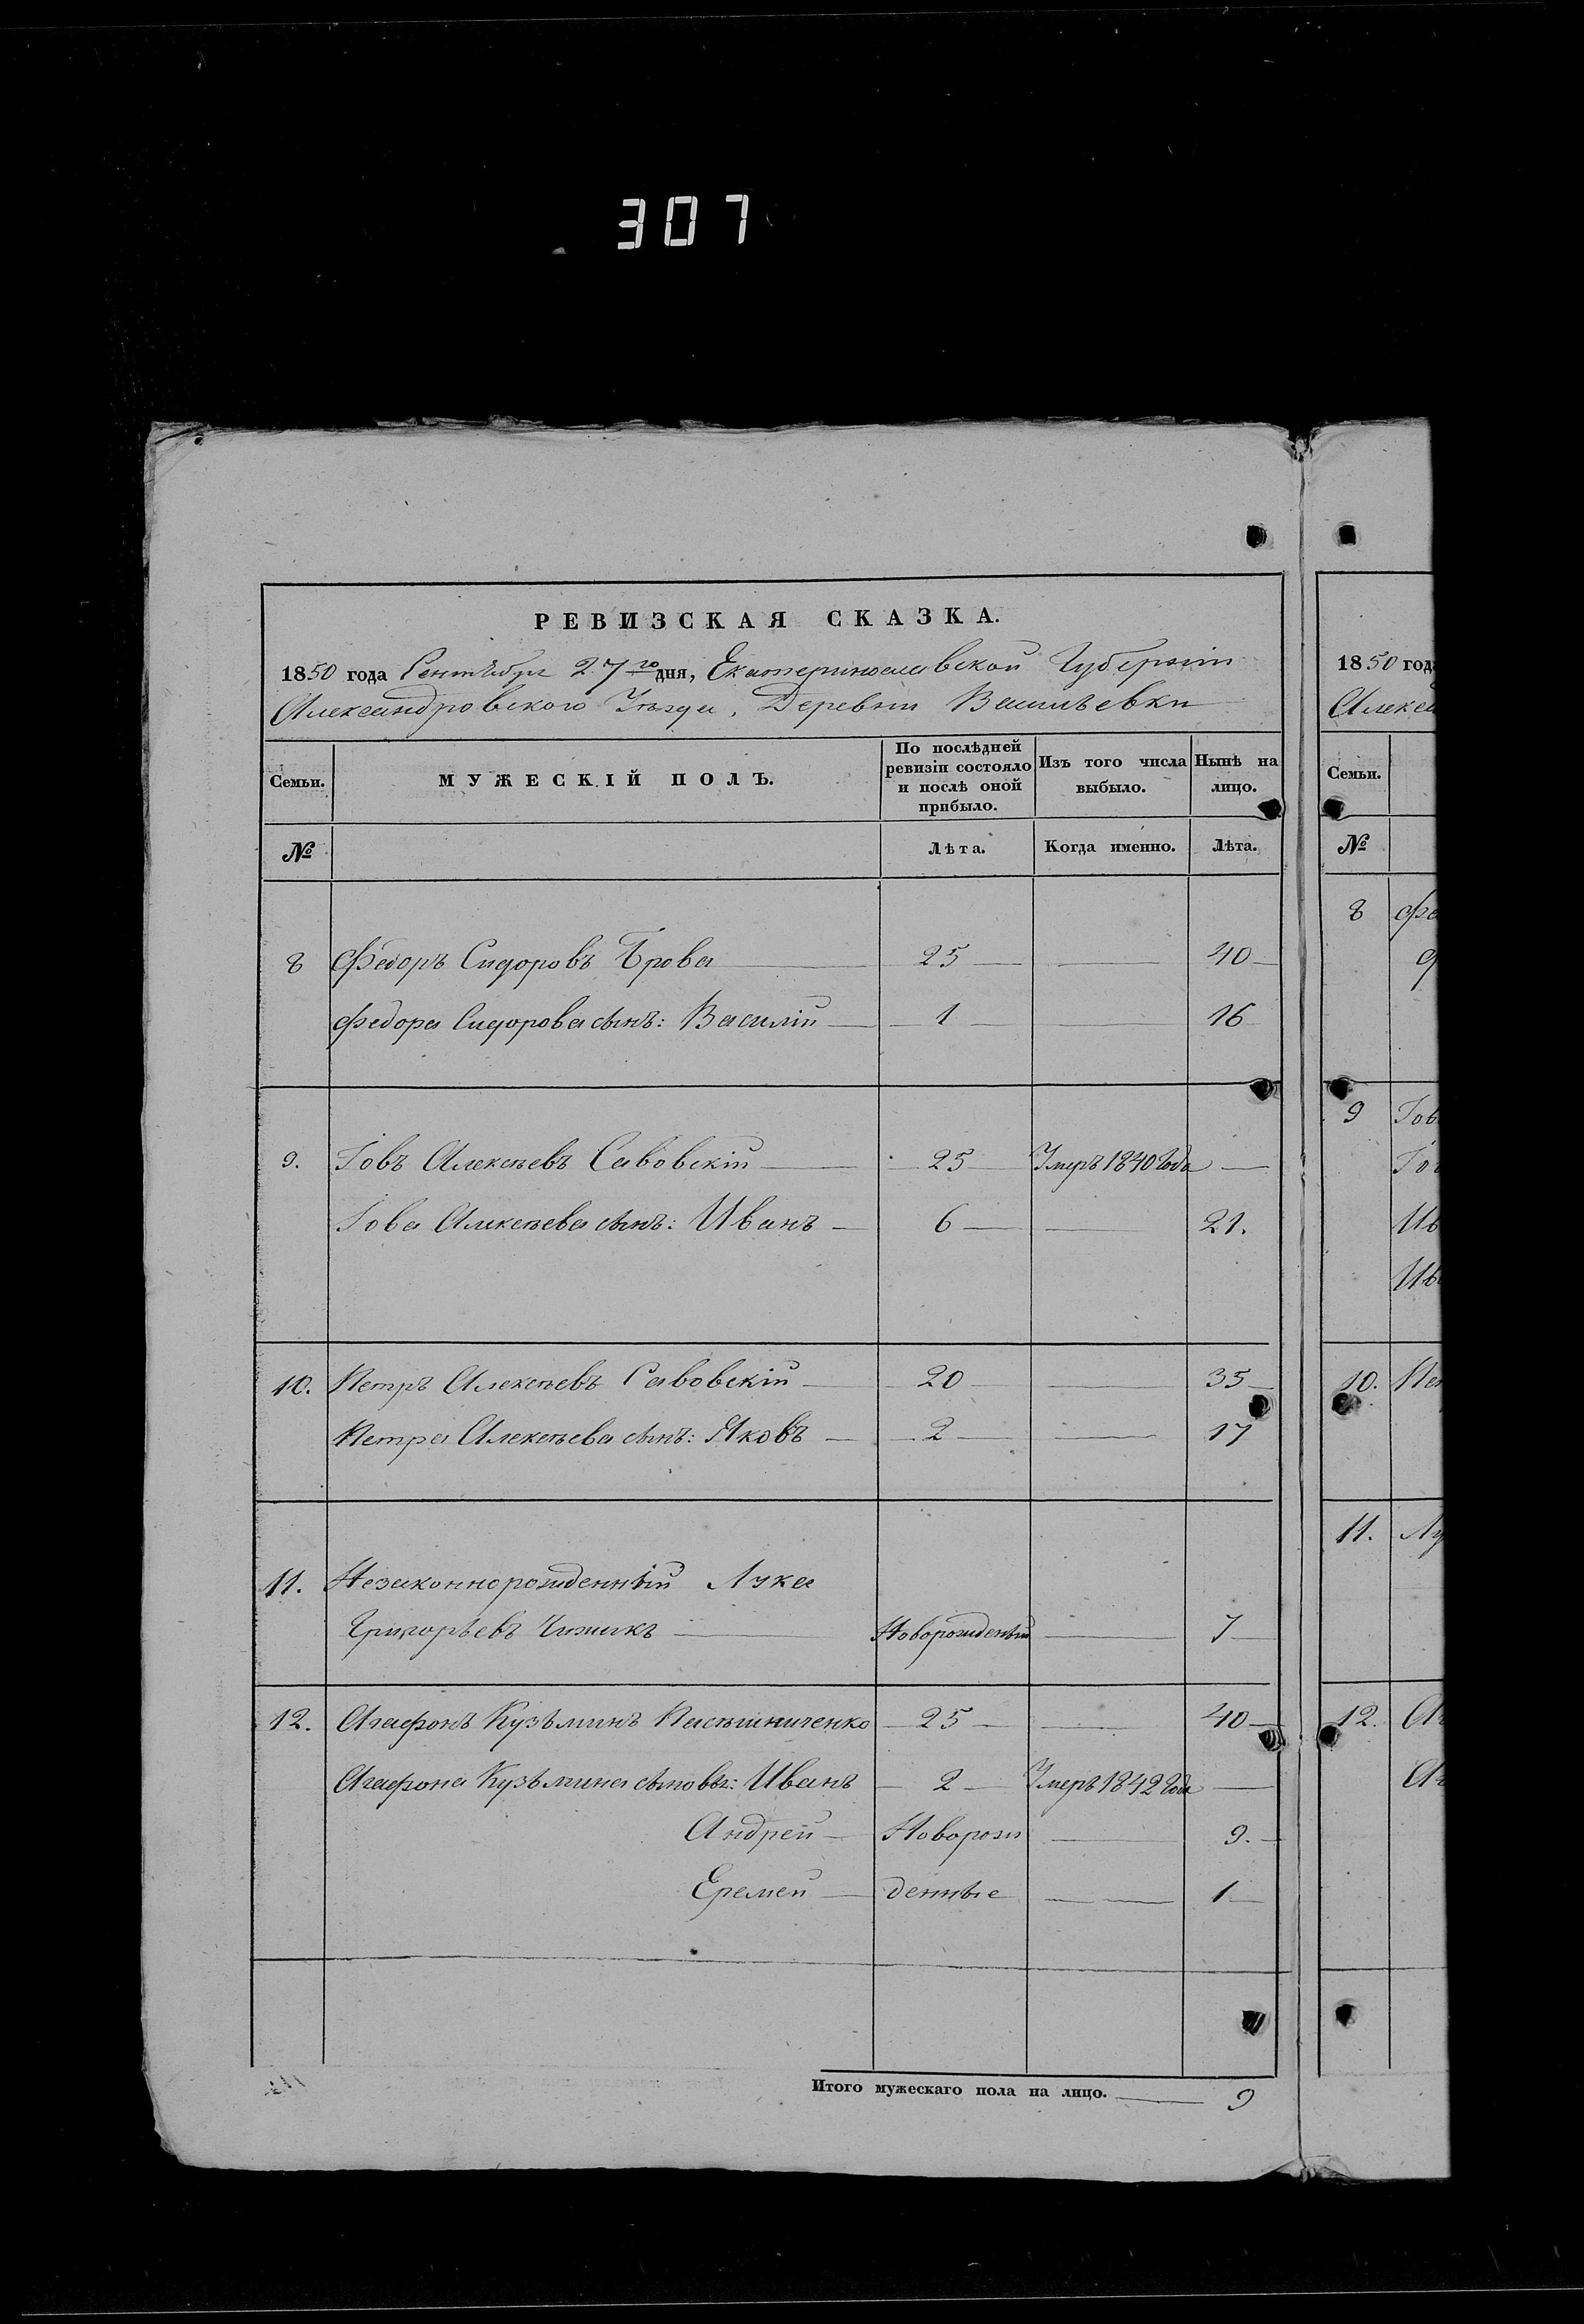 307
РЕВИЗСКАЯ СКАЗКА.
1850 года Сентября 27го дня, Екатеринославской Губернии
Александровского Уезда, Деревни Васильевки
Семьи. МУЖЕСКІЙ ПОЛЪ. По послѣдней ревизіи состояло и послѣ оной прибыло. Изъ того числа выбыло. Нынѣ на лицо.
№ Лѣта. Когда именно. Лѣта.
8 Федоръ Сидоровъ Брова 25 — 40
Федора Сидорова сынъ: Василій 1 — 16
9. Іовъ Алексѣевъ Савовскій 25 Умеръ 1840 года —
Іова Алексѣева сынъ: Иванъ 6 — 21.
10. Петръ Алексѣевъ Савовскій 20 — 35
Петра Алексѣева сынъ: Яковъ 2 — 17
11. Незаконнорожденный Лука
Григорьевъ Чижикъ Новорожденый — 7
12. Агафонъ Кузьминъ 25 — 40
Агафона Кузьмина сыновья: Иванъ 2 Умеръ 1842 года —
Андрей Новорож — 9.
Еремей денные — 1
Итого мужескаго пола на лицо. 9
1850 года
Алекса
Семьи.
№
8 Фе
9 Іов
Іо
Ив
Ив
10. Пе
11. Лу
12. Аг
Аг